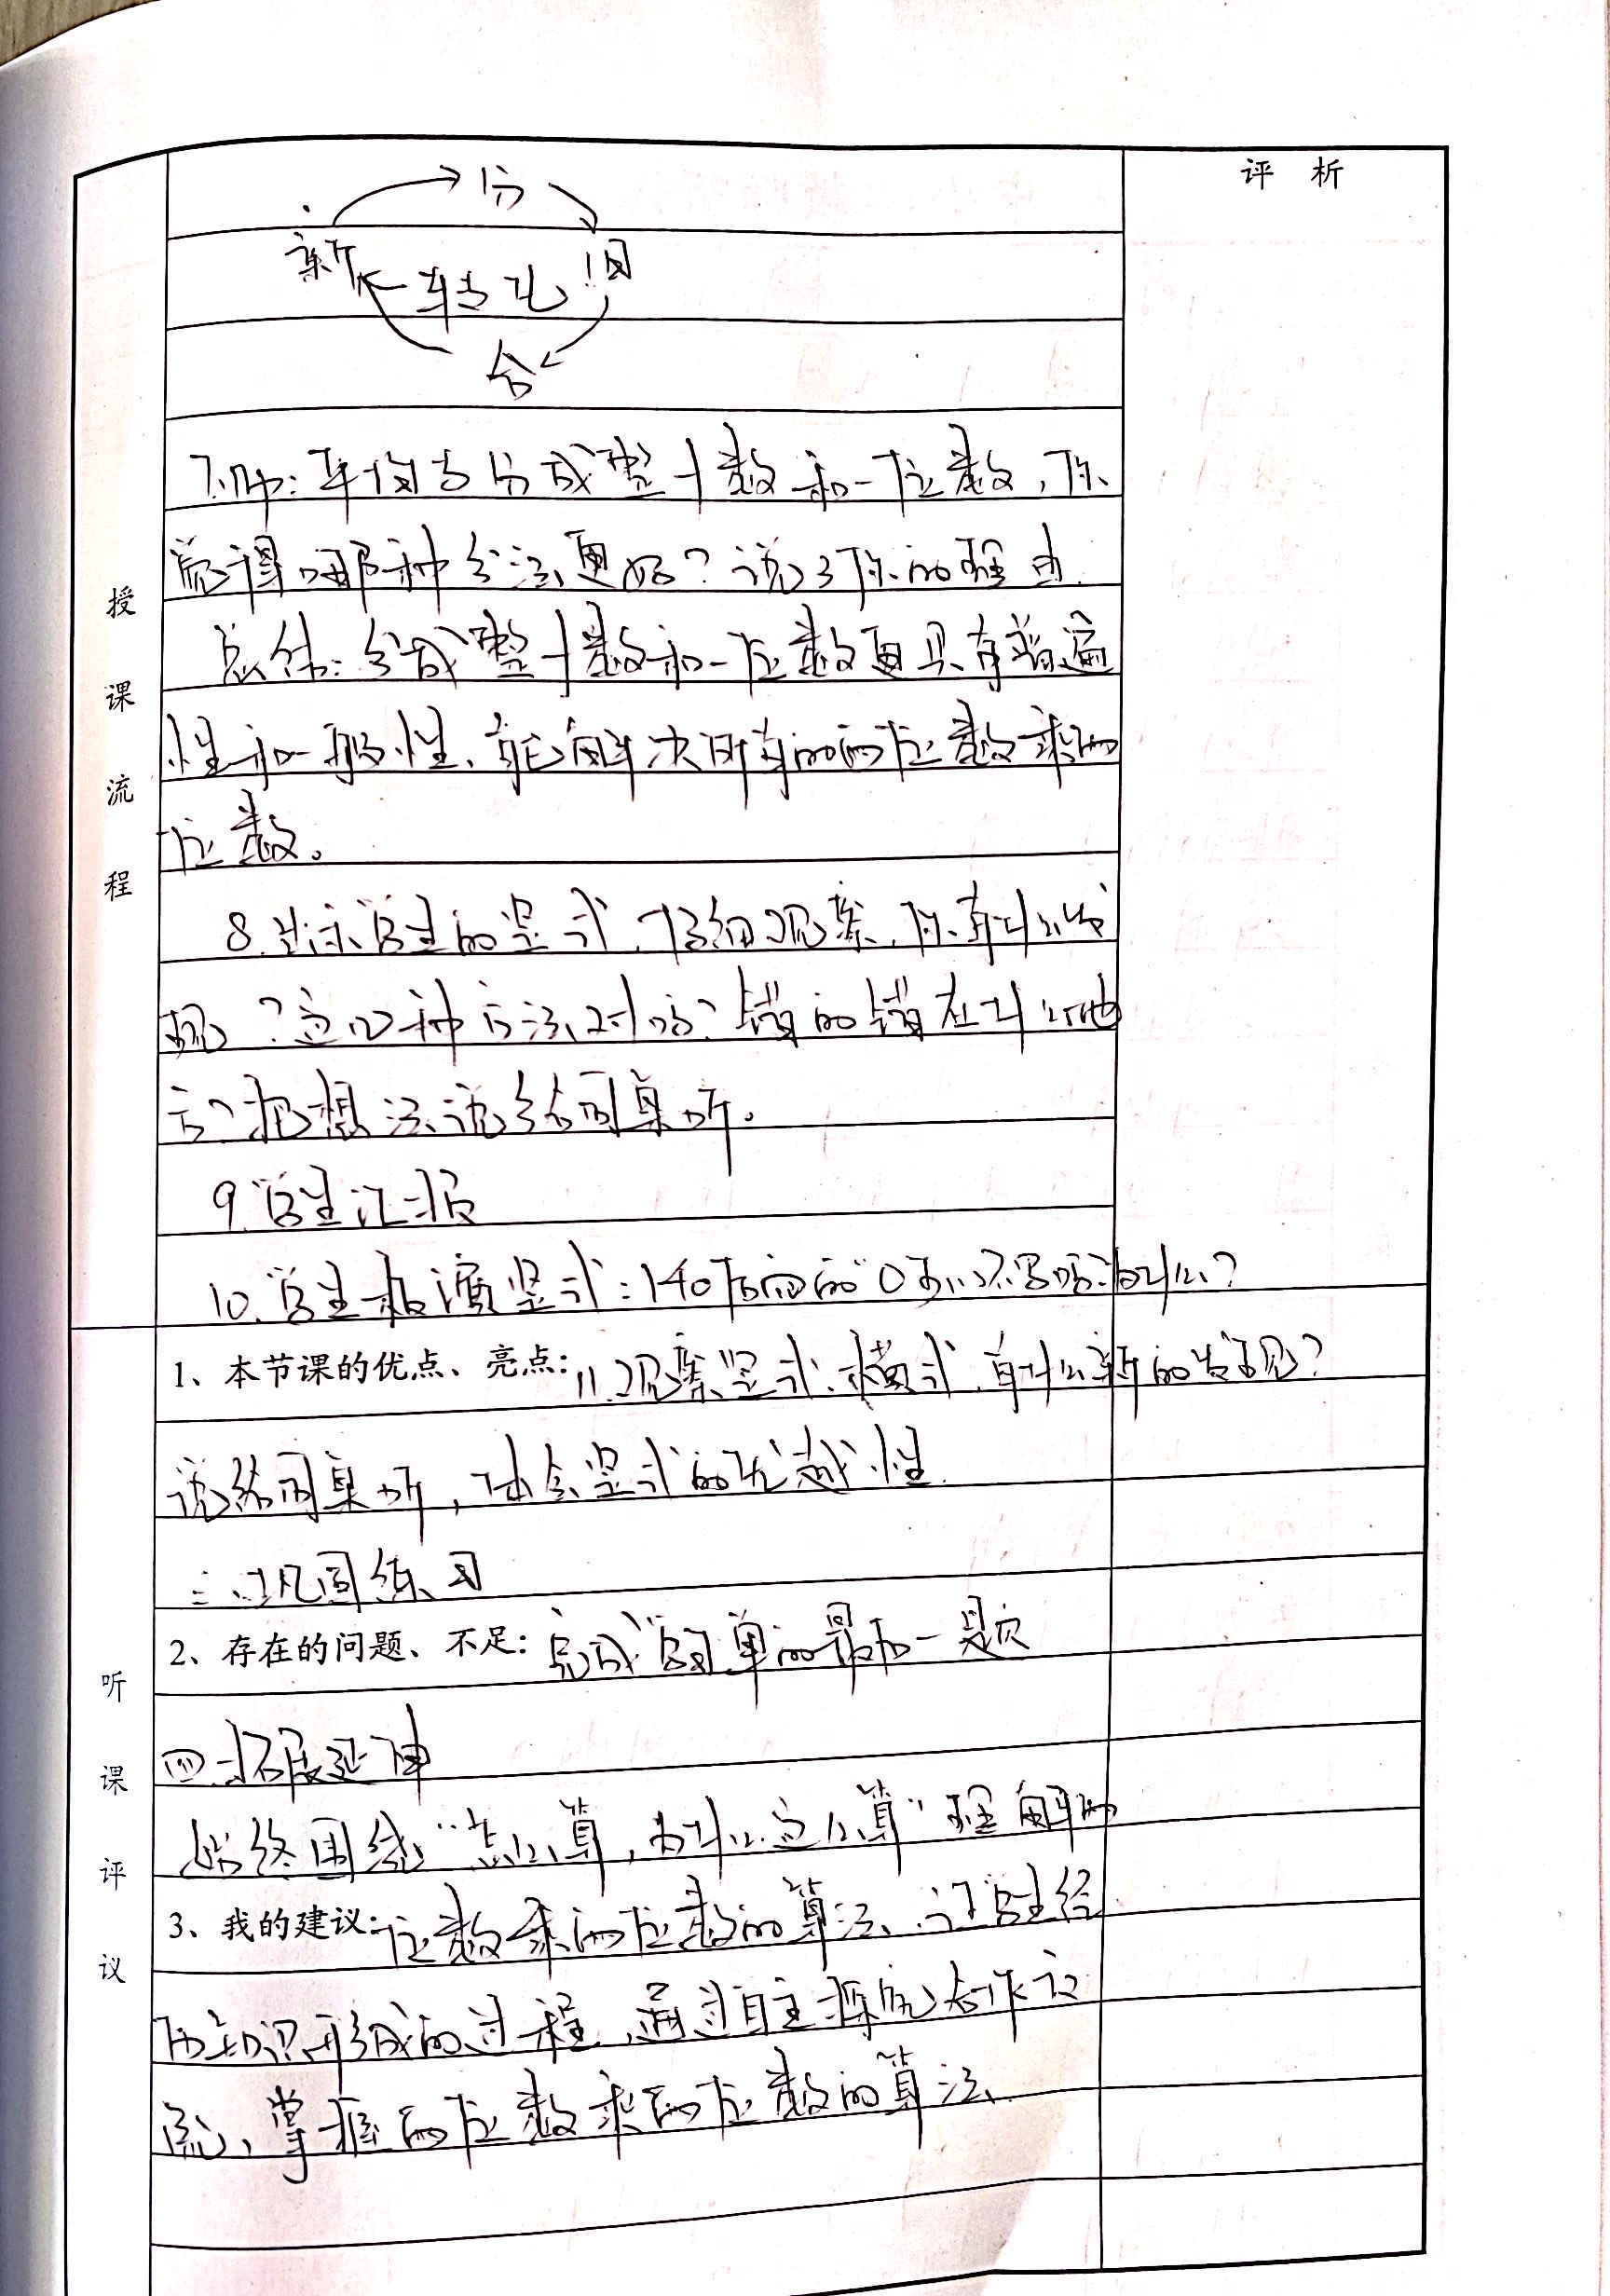 评 析
分
新 转化 旧
合
7.师:平均与分成整十数和一位数,你
觉得哪种分法更好?说说你的理由.
总结:分成整十数和一位数更具有普遍
性和一般性、能解决所有的两位数乘两
位数。
8.出示学生的竖式,仔细观察,你有什么发
现?这四种方法对吗?错的错在什么地
方?把想法说给同桌听。
9.学生汇报
10.学生板演竖式:140后面的"0"可以不写吗?为什么?
授课流程
1、本节课的优点、亮点:11.观察竖式、横式,有什么新的发现?
说给同桌听,体会竖式的优越性.
三、巩固练习
2、存在的问题、不足:完成学习单的最后一题
四、拓展延伸
始终围绕"怎么算,为什么这么算"理解两
3、我的建议:位数乘两位数的算法、让学生经
历知识形成的过程,通过自主探究合作交
流、掌握两位数乘两位数的算法.
听课评议